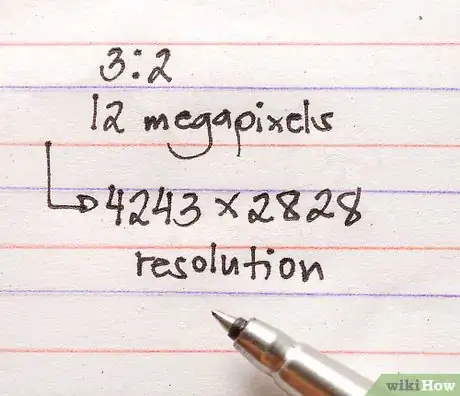 3:2
12 megapixels
4243 x 2828
resolution
wikiHow